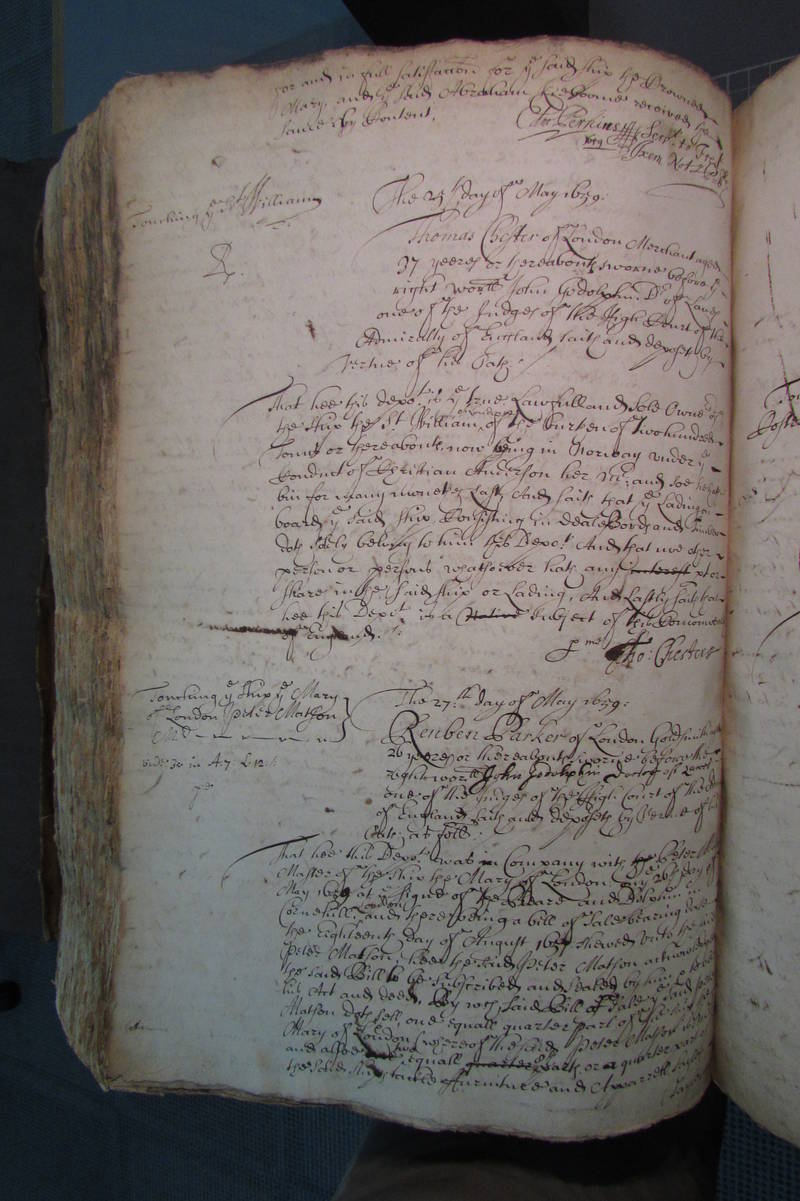 for and in full satisfaction for ye said ship the Browne
Mary, and ye said Abraham received the
same by Content.
Touching ye St William
The 24th day of May 1659.
Thomas Chester of London Merchant aged
37 yeeres or thereabouts sworne before ye
right worll John Godolphin Dr of Lawes
one of the Judges of the High Court of the
Admiralty of England saith and deposeth by
vertue of his Oath.
That hee this depot is ye true Lawfull and sole Owner of
the ship the St William, of the burthen of Two hundred
Tonns or thereabouts, now being in Norway under ye
Conduct of Christian Anderson her Mr, and soe hath
bin for many moneths last, And saith that ye Lading a
board ye said ship Consisting in deale Bords and timber
doth solely belong to him this Depot. And that noe other
person or persons whatsoever hath any interest pt or
share in the said ship or Lading, And Lastly saith that
hee this Depot is a Native Subject of this Comonwealth
of England.
Tho: Chester
Touching ye ship ye Mary
of London Peter Matson
Mr
The 27th day of May 1659.
Reuben Parker of London Goldsmith
26 yeeres or thereabouts sworne before the
right worll John Godolphin Doctor of Lawes
one of the Judges of the High Court of the
of England saith and deposeth by Vertue of his
Oath, as foll:
That hee this Depot was in Company with the Peter
Master of the ship the Mary of London day of
May 1659 at ye Signe of the Beare and Dolphin in
Cornehill London and there being a bill of Sale bearing date
the Eighteenth day of August shewed unto the said
Peter Matson, hee the said Peter Matson acknowledged
the said Bill to be subscribed and sealed by him
his Act and deed, By wch said Bill of Sale ye said Peter
Matson doth sell, one equall quarter part of the
Mary of London (whereof the said Peter Matson
and alsoe two equall parts or a quarter part of
the said ship tackle furniture and Apparrell